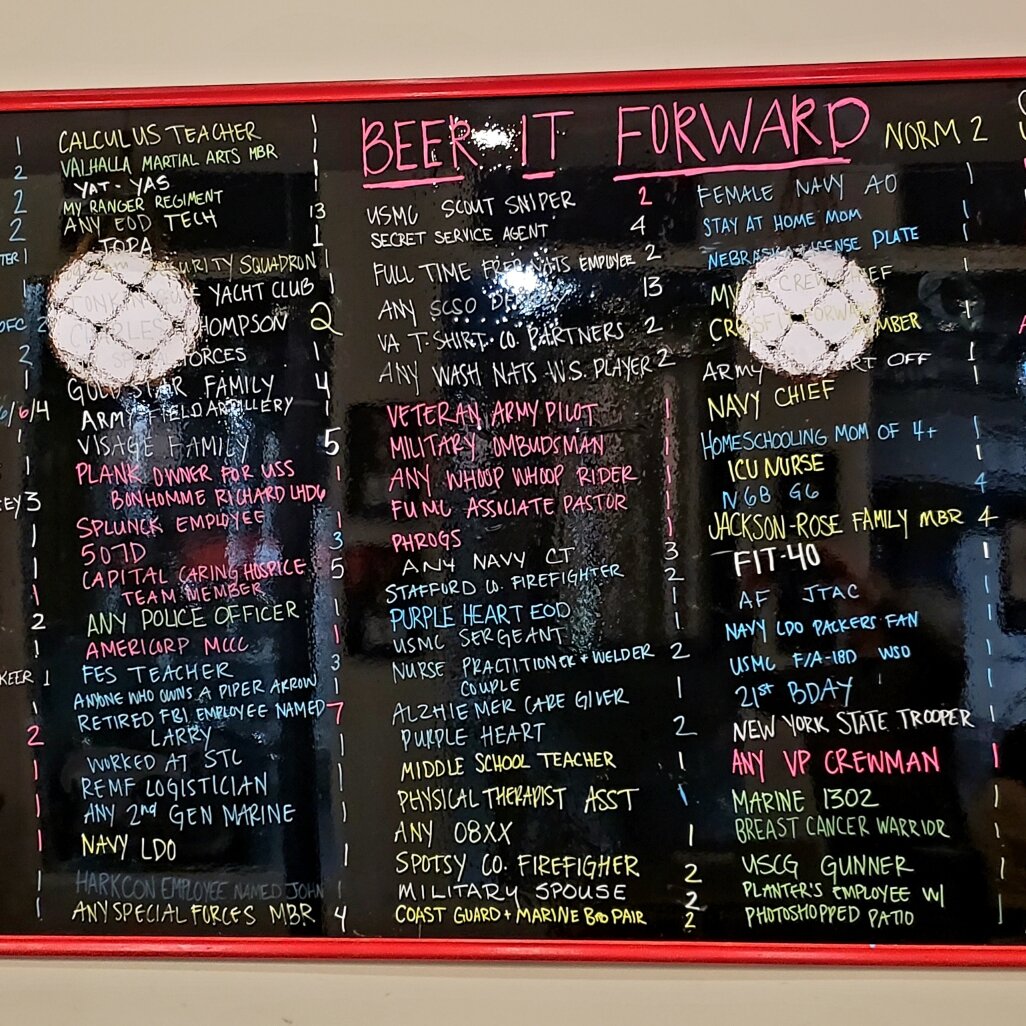 CALCULUS TEACHER 1
VALHALLA MARTIAL ARTS MBR 1
YAT-YAS 1
MY RANGER REGIMENT
ANY EOD TECH 13
TOPA 1
URITY SQUADRON 1
YACHT CLUB 1
CHARLES THOMPSON 2
FORCES 1
GOLD STAR FAMILY 4
ARMY FIELD ARTILLERY 1
VISAGE FAMILY 5
PLANK OWNER FOR USS 1
BONHOMME RICHARD LHD6
SPLUNCK EMPLOYEE 1
507D 3
CAPITAL CARING HOSPICE 5
TEAM MEMBER
ANY POLICE OFFICER 1
AMERICORP MCCC 1
FES TEACHER 3
ANYONE WHO OWNS A PIPER ARROW 1
RETIRED FBI EMPLOYEE NAMED 7
LARRY
WORKED AT STC 1
REMF LOGISTICIAN 1
ANY 2nd GEN MARINE 1
NAVY LDO 1
HARKCON EMPLOYEE NAMED JOHN 1
ANY SPECIAL FORCES MBR 4
BEER IT FORWARD
USMC SCOUT SNIPER 2
SECRET SERVICE AGENT 4
FULL TIME FRED NATS EMPLOYEE 2
ANY SCSO DEPUTY 13
VA T-SHIRT CO. PARTNERS 2
ANY WASH NATS W.S. PLAYER 2
VETERAN ARMY PILOT 1
MILITARY OMBUDSMAN 1
ANY WHOOP WHOOP RIDER 1
FUMC ASSOCIATE PASTOR 1
PHROGS 1
ANY NAVY CT 3
STAFFORD CO. FIREFIGHTER 2
PURPLE HEART EOD 1
USMC SERGEANT 1
NURSE PRACTITIONER + WELDER 2
COUPLE
ALZHIEMER CARE GIVER 1
PURPLE HEART 2
MIDDLE SCHOOL TEACHER 1
PHYSICAL THERAPIST ASST 1
ANY 08XX 1
SPOTSY CO. FIREFIGHER 2
MILITARY SPOUSE 2
COAST GUARD + MARINE BRO PAIR 2
NORM 2
FEMALE NAVY AO 1
STAY AT HOME MOM 1
NEBRASKA LICENSE PLATE 1
CREW CHIEF 1
CROSSFIT FORWARD MEMBER 1
ARMY OFF 1
NAVY CHIEF 1
HOMESCHOOLING MOM OF 4+ 1
ICU NURSE 1
N6B G6 4
JACKSON-ROSE FAMILY MBR 4
FIT-40 1
AF JTAC 1
NAVY LDO PACKERS FAN 1
USMC F/A-18D WSO 1
21st BDAY 1
NEW YORK STATE TROOPER 1
ANY VP CREWMAN 1
MARINE 1302 1
BREAST CANCER WARRIOR 1
USCG GUNNER 1
PLANTER'S EMPLOYEE W/ 1
PHOTOSHOPPED PATIO